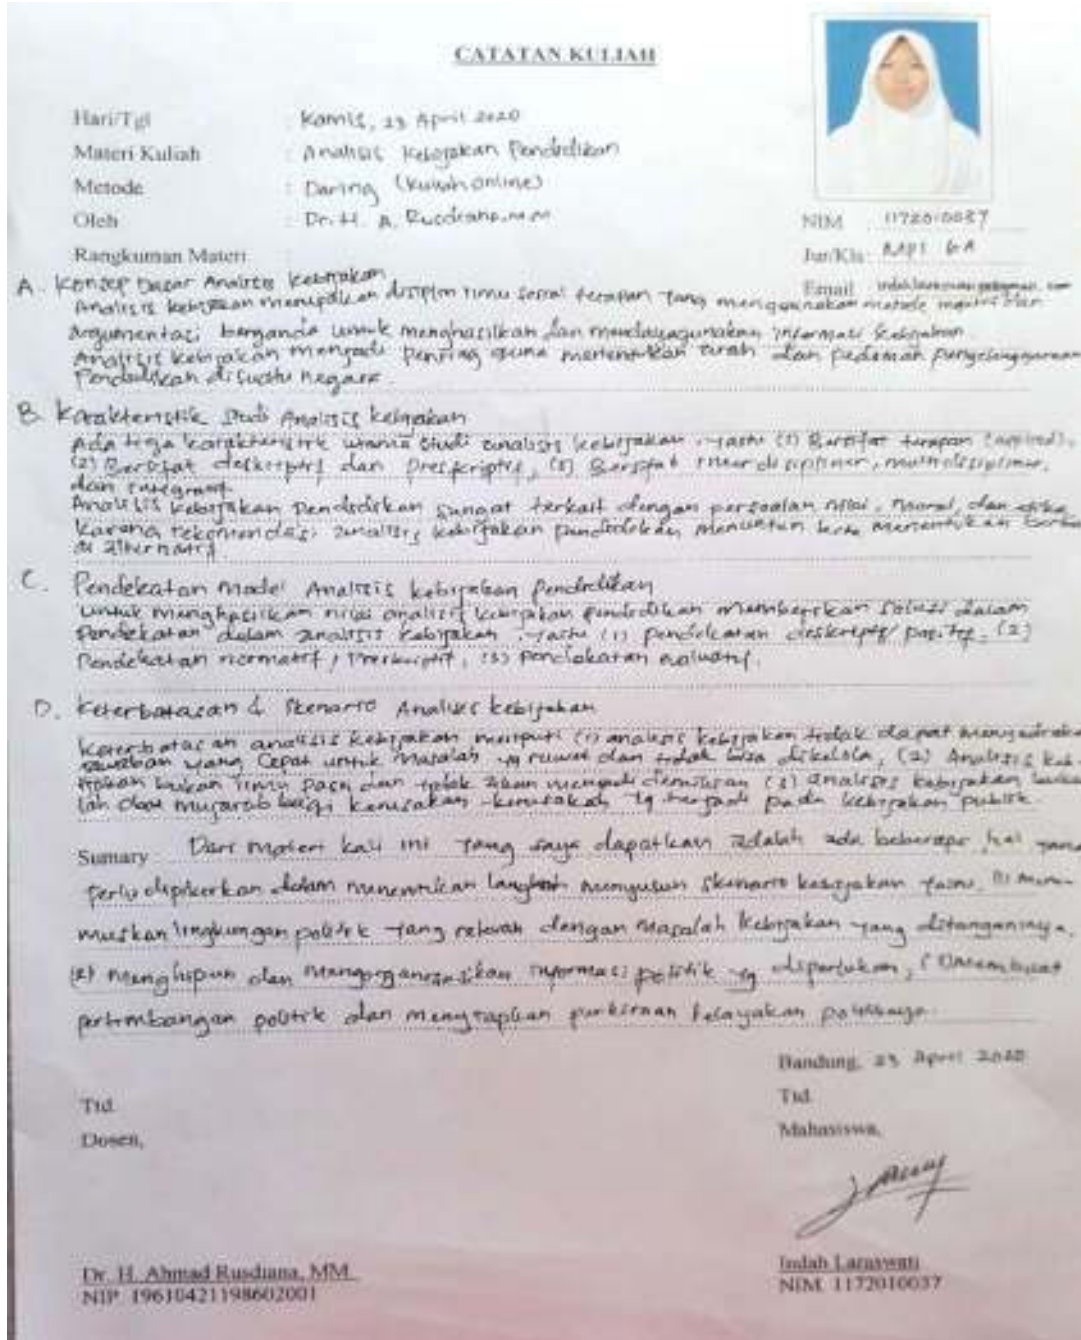 CATATAN KULIAH
Hari/Tgl : Kamis, 23 April 2020
Materi Kuliah : Analisis Kebijakan Pendidikan
Metode : Daring (Kuliah online)
Oleh : Dr. H. A. Rusdiana, M.M
NIM 1172010037
Rangkuman Materi :
Jur/Kls: MPI 6A
Email
A. Konsep Dasar Analisis Kebijakan
Analisis kebijakan merupakan disiplin ilmu sosial terapan yang menggunakan metode dan
Argumentasi berganda untuk menghasilkan dan mendayagunakan informasi kebijakan.
Analisis kebijakan menjadi penting guna menentukan arah dan pedoman penyelenggaraan
Pendidikan disuatu negara.
B. Karakteristik Studi Analisis kebijakan
Ada tiga karakteristik utama studi analisis kebijakan, yaitu (1) Bersifat terapan (applied),
(2) Bersifat deskriptif dan preskriptif, (3) Bersifat interdisipliner, multidisipliner,
dan integratif.
Analisis kebijakan pendidikan sangat terkait dengan persoalan nilai, moral, dan etika
karena rekomendasi analisis kebijakan pendidikan menuntun kita menentukan
alternatif.
C. Pendekatan Model Analisis kebijakan Pendidikan
untuk menghasilkan nilai analisis kebijakan pendidikan memberikan solusi dalam
Pendekatan dalam analisis kebijakan, yaitu (1) pendekatan deskriptif/positif, (2)
Pendekatan normatif/Preskriptif, (3) pendekatan evaluatif.
D. Keterbatasan & Skenario Analisis kebijakan
Keterbatasan analisis kebijakan meliputi (1) analisis kebijakan tidak dapat menyediakan
jawaban yang cepat untuk masalah yg rumit dan tidak bisa dikelola, (2) Analisis keb-
ijakan bukan ilmu pasti dan tidak akan menjadi demikian (3) analisis kebijakan bukan
lah obat mujarab bagi kerusakan-kerusakan yg terjadi pada kebijakan publik.
Sumary : Dari materi kali ini yang saya dapatkan adalah ada beberapa hal yang
perlu dipikirkan dalam menentukan langkah menyusun skenario kebijakan yaitu, (1) meru-
muskan lingkungan politik yang relevan dengan masalah kebijakan yang ditanganinya,
(2) menghipun dan mengorganisasikan informasi politik yg diperlukan, membuat
pertimbangan politik dan menyiapkan perkiraan kelayakan
Bandung, 23 April 2020
Ttd. Ttd.
Dosen, Mahasiswa,
Dr. H. Ahmad Rusdiana, MM. Indah Laraswati
NIP. 19610421198602001 NIM. 1172010037